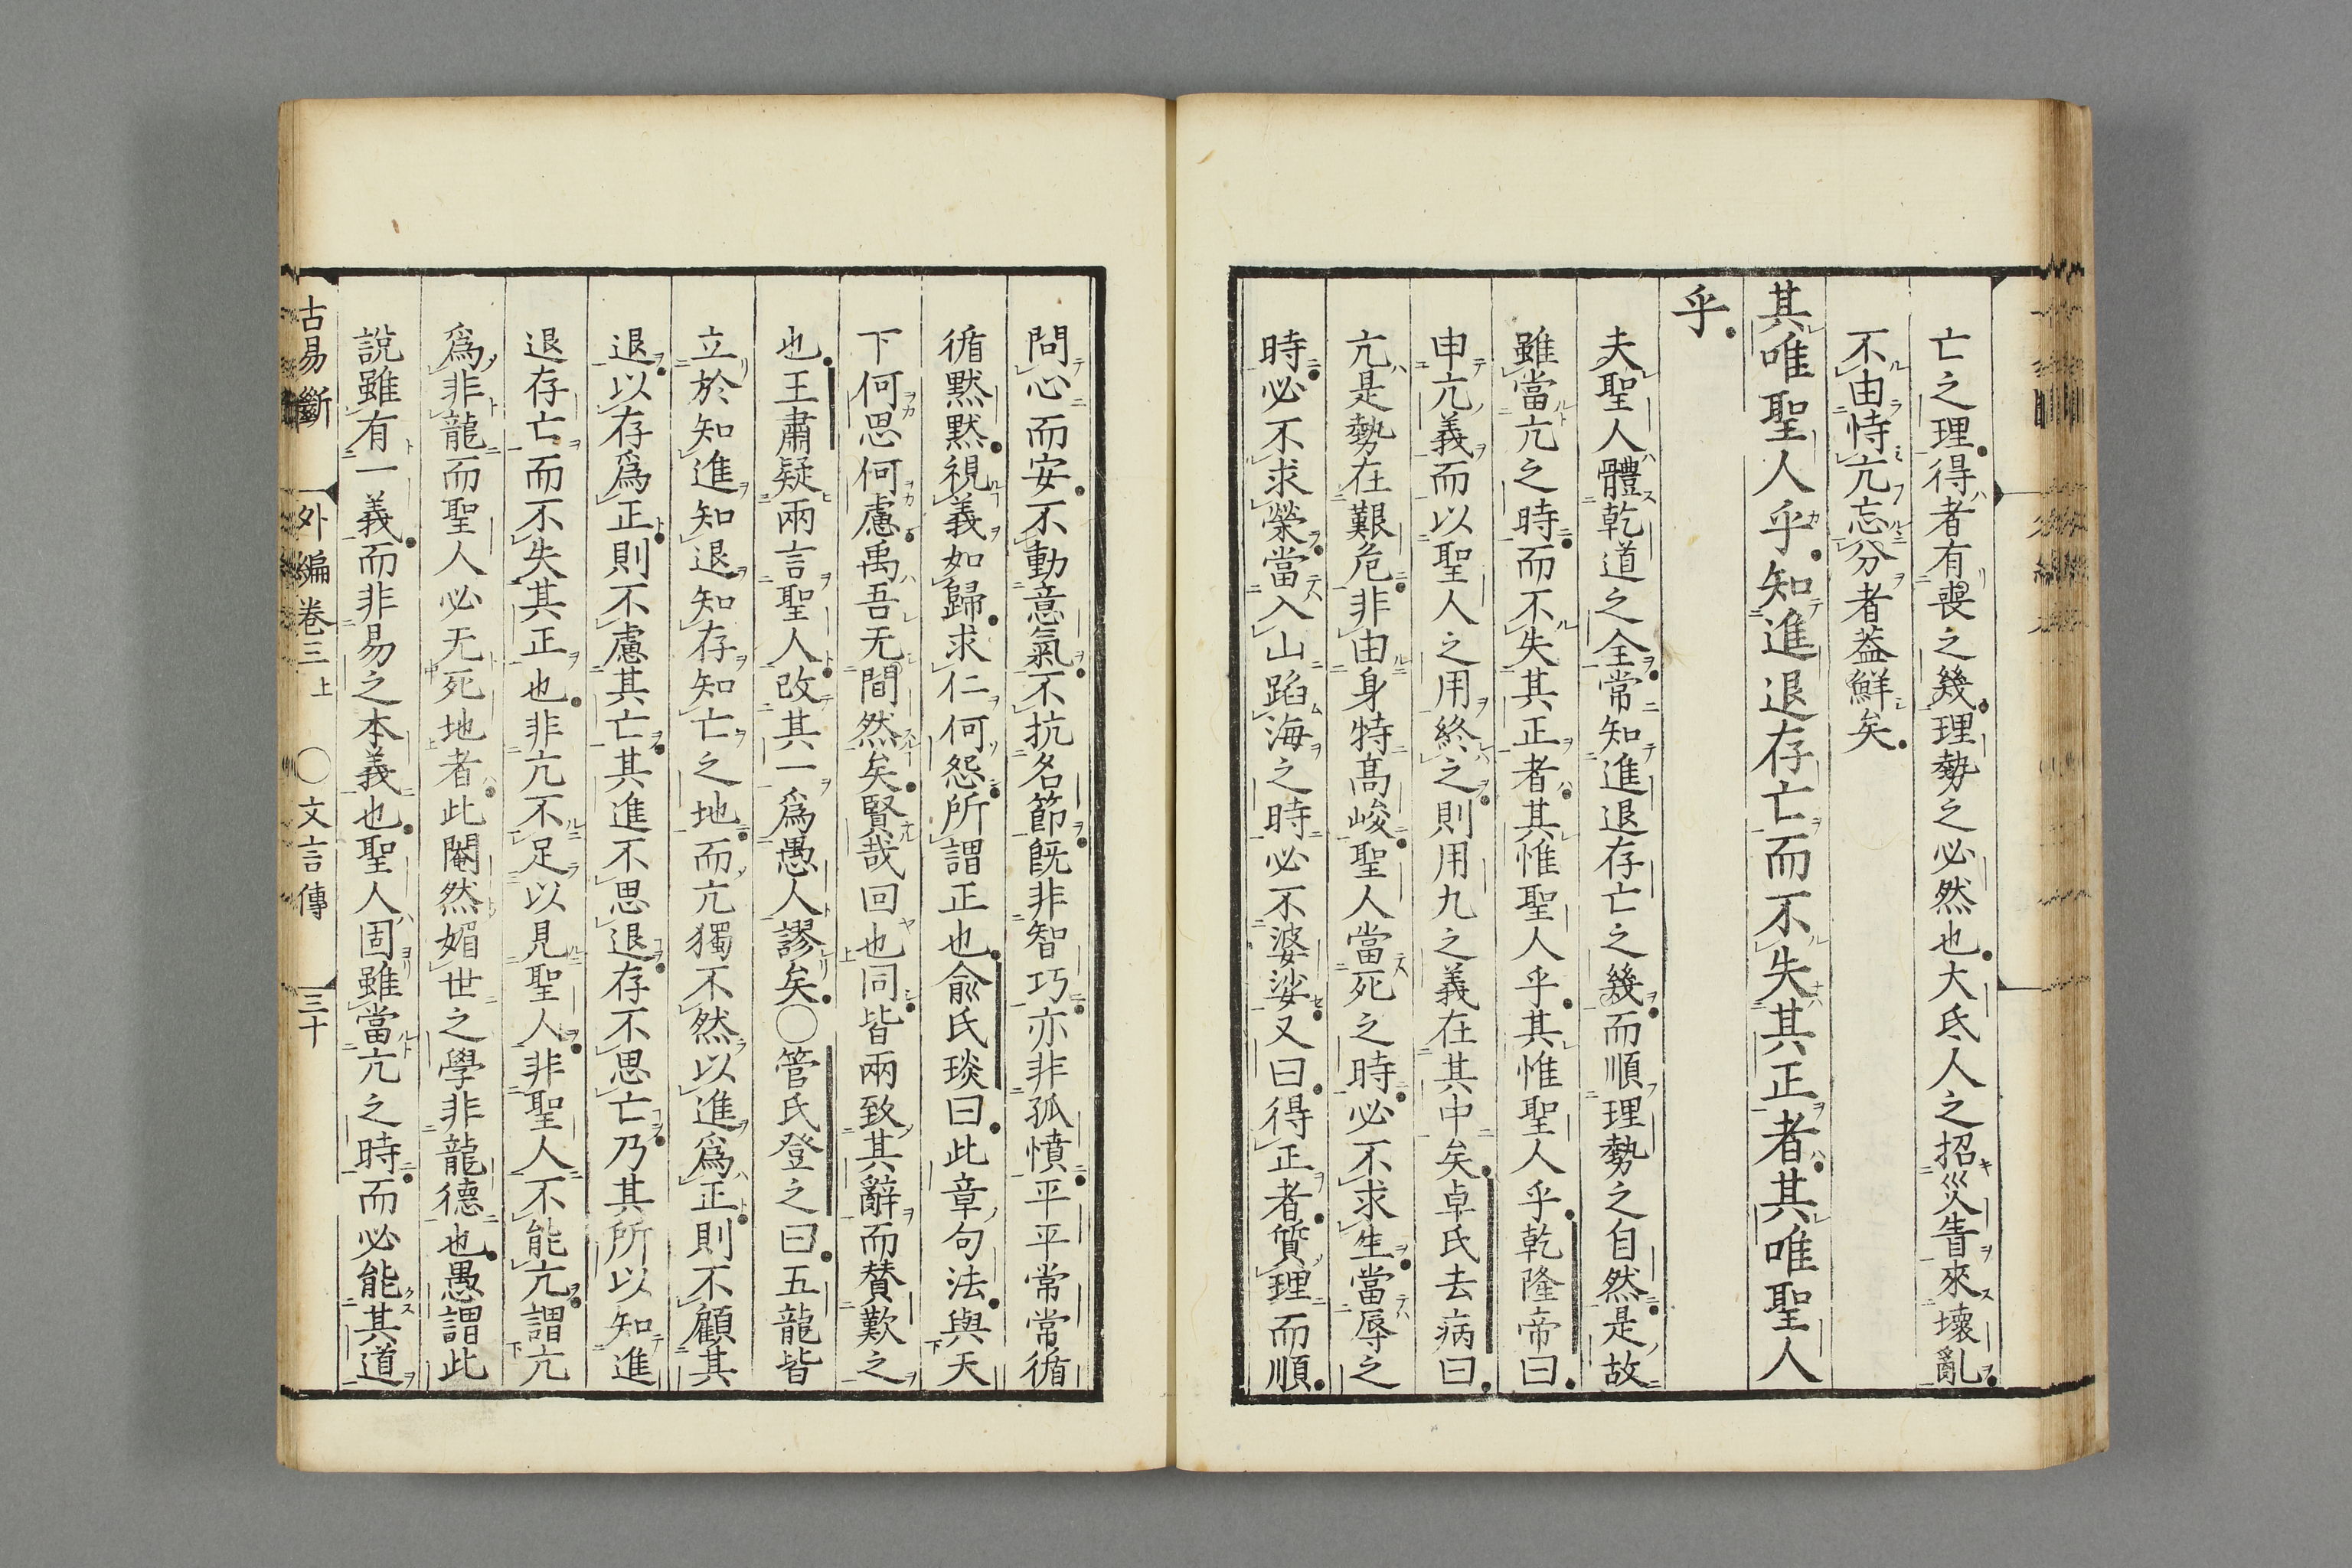 亡之理得者有喪之幾理勢之必然也大氐人之招災眚來壞亂
不由恃亢忘分者蓋鮮矣
其唯聖人乎知進退存亡而不失其正者其唯聖人
乎
夫聖人體乾道之全常知進退存亡之幾而順理勢之自然是故
雖當亢之時而不失其正者其惟聖人乎其惟聖人乎乾隆帝曰
申亢義而以聖人之用終之則用九之義在其中矣卓氏去病曰
亢是勢在艱危非由身特高峻聖人當死之時必不求生當辱之
時必不求榮當入山蹈海之時必不婆娑又曰得正者質理而順
問心而安不動意氣不抗名節既非智巧亦非孤憤平平常常循
循默默視義如歸求仁何怨所謂正也俞氏琰曰此章句法與天
下何思何慮禹吾无間然矣賢哉回也同皆兩致其辭而贊歎之
也王肅疑兩言聖人改其一爲愚人謬矣〇管氏登之曰五龍皆
立於知進知退知存知亡之地而亢獨不然以進爲正則不顧其
退以存爲正則不慮其亡其進不思退存不思亡乃其所以知進
退存亡而不失其正也非亢不足以見聖人非聖人不能亢謂亢
爲非龍而聖人必无死地者此閹然媚世之學非龍德也愚謂此
說雖有一義而非易之本義也聖人固雖當亢之時而必能其道
古易斷 外編卷三上 〇文言傳 三十